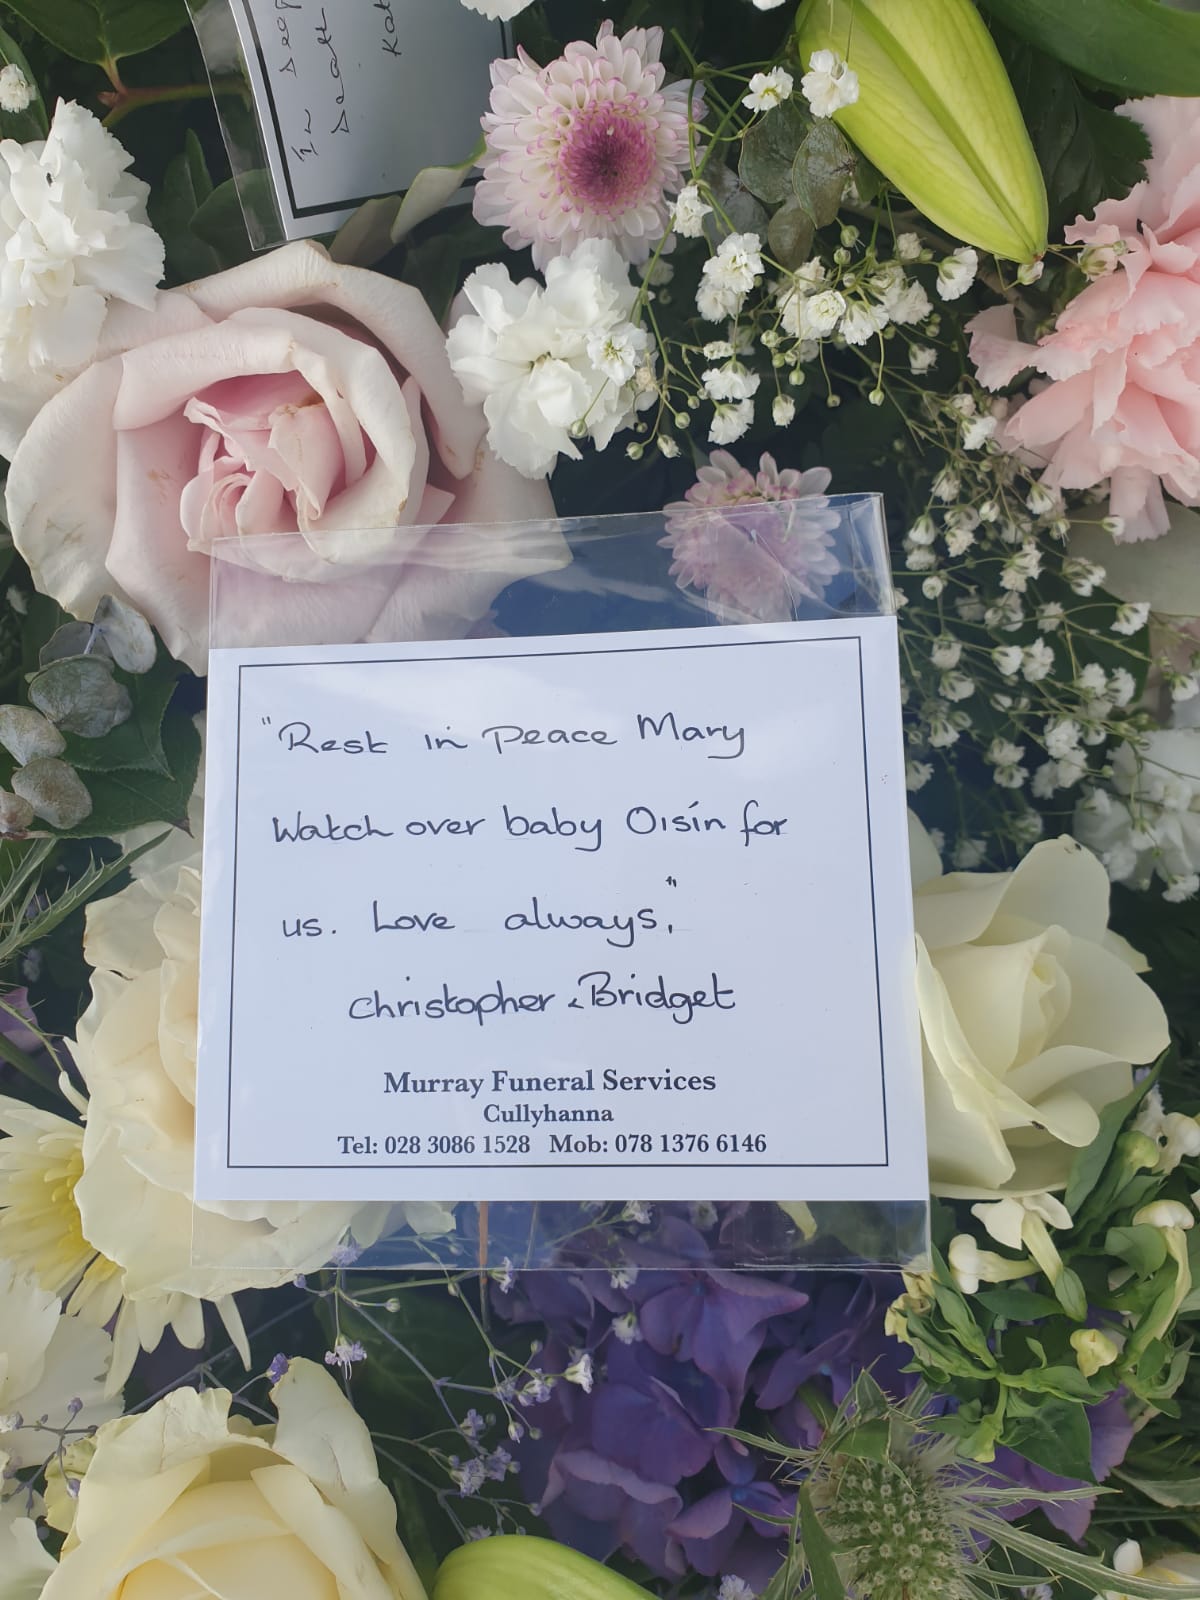 In Deep
"Rest in Peace Mary
Watch over baby Oisín for
us. Love always,"
Christopher & Bridget
Murray Funeral Services
Cullyhanna
Tel: 028 3086 1528 Mob: 078 1376 6146